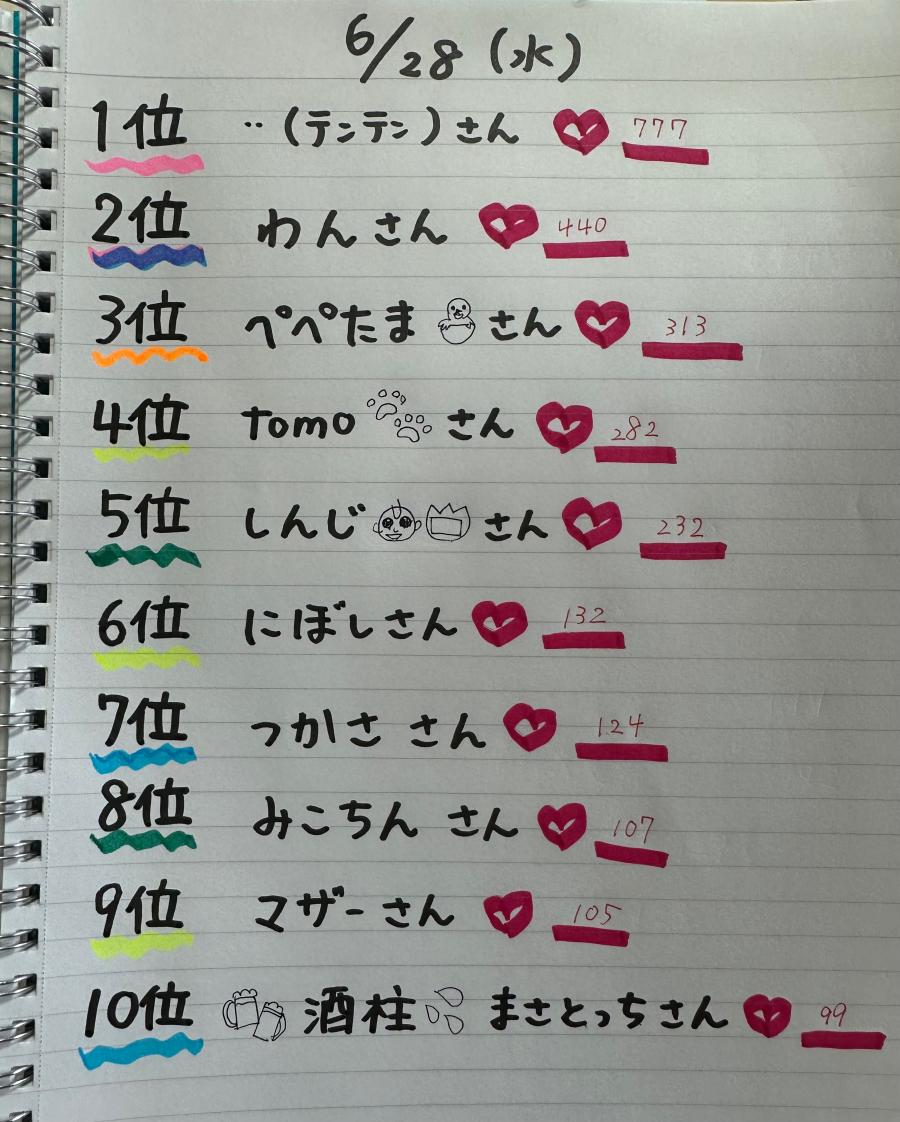 6/28 (水)
1位 ‥(テンテン)さん 777
2位 わんさん 440
3位 ぺぺたまさん 313
4位 tomoさん 282
5位 しんじさん 232
6位 にぼしさん 132
7位 つかさ さん 124
8位 みこちん さん 107
9位 マザーさん 105
10位 酒柱 まさとっちさん 99